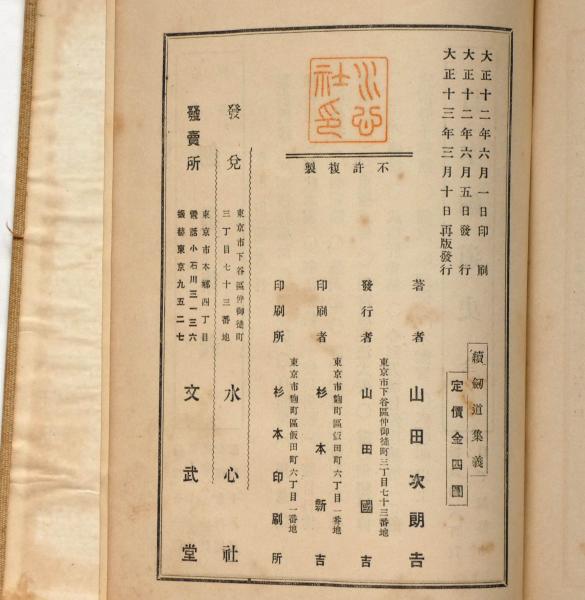 大正十二年六月一日印刷
大正十二年六月五日發行
大正十三年三月十日再版發行
續劒道集義
定價金四圓
著者 山田次朗吉
東京市下谷區仲御徒町三丁目七十三番地
發行者 山田國吉
東京市麹町區飯田町六丁目一番地
印刷者 杉本新吉
東京市麹町區飯田町六丁目一番地
印刷所 杉本印刷所
不許複製
水心社印
東京市下谷區仲御徒町
三丁目七十三番地
發兌 水心社
東京市本郷四丁目
電話小石川三一三六
振替東京九五二七
發賣所 文武堂